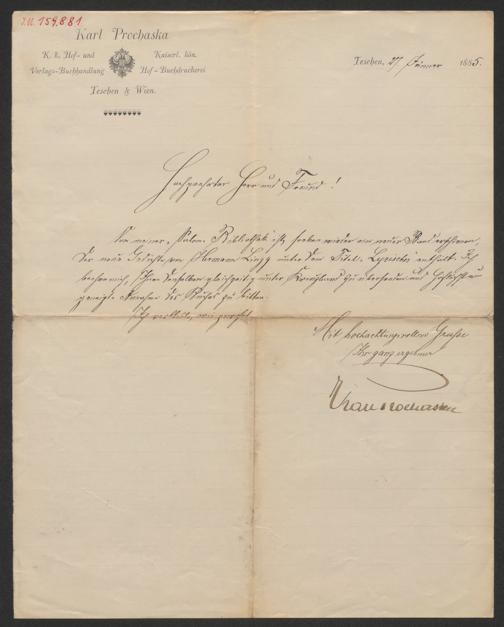 I.N. 159.881
Karl Prochaska
K. k. Hof- und Kaiserl. kön.
Verlags-Buchhandlung Hof-Buchdruckerei
Teschen & Wien.
Teschen, 27 Jänner 1885.
Hochgeehrter Herr und Freund!
Von meiner „Salon-Bibliothek“ ist soeben wieder ein neuer Band erschienen,
der neue Gedichte von Hermann Lingg unter dem Titel „Lyrisches“ enthält. Ich
beehre mich, Ihnen denselben gleichzeitig unter Kreuzband zu übersenden und
geneigte Annahme des Buches zu bitten.
Mit hochachtungsvollem Gruße
Ihr ganz ergebener
Karl Prochaska